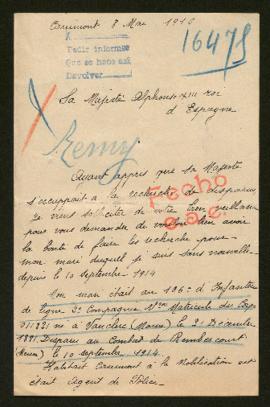 Caumont 8 Mai 1916
A
Pedir informes
Que se haga asi
Devolver
16475
Sa Majesté Alphonse XIII roi
d'Espagne
Remy
Ayant appris que Sa Majesté
s'occupait à la recherche de disparus
Je viens solliciter de votre bienveillance
pour vous demander de vouloir bien avoir
la bonté de faire les recherche pour
mon mari duquel je suis sans nouvelle
depuis le 10 Septembre 1914
Fecho
Mon mari était au 106e d'Infanterie
de ligne 3e Compagnie Nro Matricule du Corps
né à Vauclerc (Marne) le 2 Décembre
1891. Disparu au Combat de Rembercourt
(Meuse) le 10 septembre 1914.
Habitait Caumont à la Mobilisation et
était Agent de Police